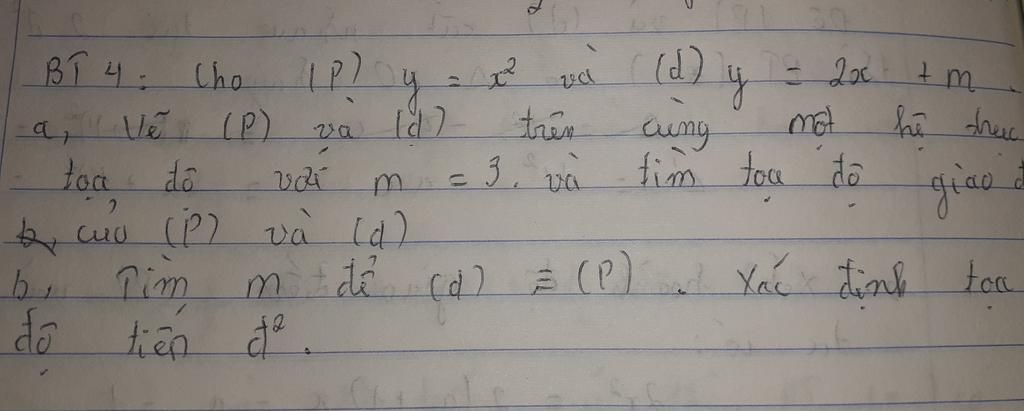 BT 4: Cho (P) y = x² và (d) y = 2x + m.
a, Vẽ (P) và (d) trên cùng một hệ trục
toạ độ với m = 3. và tìm toạ độ giao đ
của (P) và (d)
b, Tìm m để (d) ≡ (P). Xác định toạ
độ tiến đ².